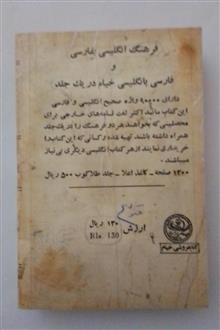 فرهنگ انگلیسی بفارسی
و
فارسی بانگلیسی خیام در یک جلد
دارای ۹۰۰۰۰ واژه صحیح انگلیسی و فارسی
این کتاب مانند اکثر لغت نامه‌های خارجی برای
محصلینی که بخواهند هر دو فرهنگ را در یک جلد
همراه داشته باشند تهیه شده و کسانی که این کتاب را
خریداری نمایند از هر کتاب انگلیسی دیگری بی نیاز
میباشند.
۱۳۰۰ صفحه - کاغذ اعلا - جلد طلاکوب ۵۰۰ ریال
ارزش ۱۳۰ ریال
Rls 130
کتابفروشی خیام